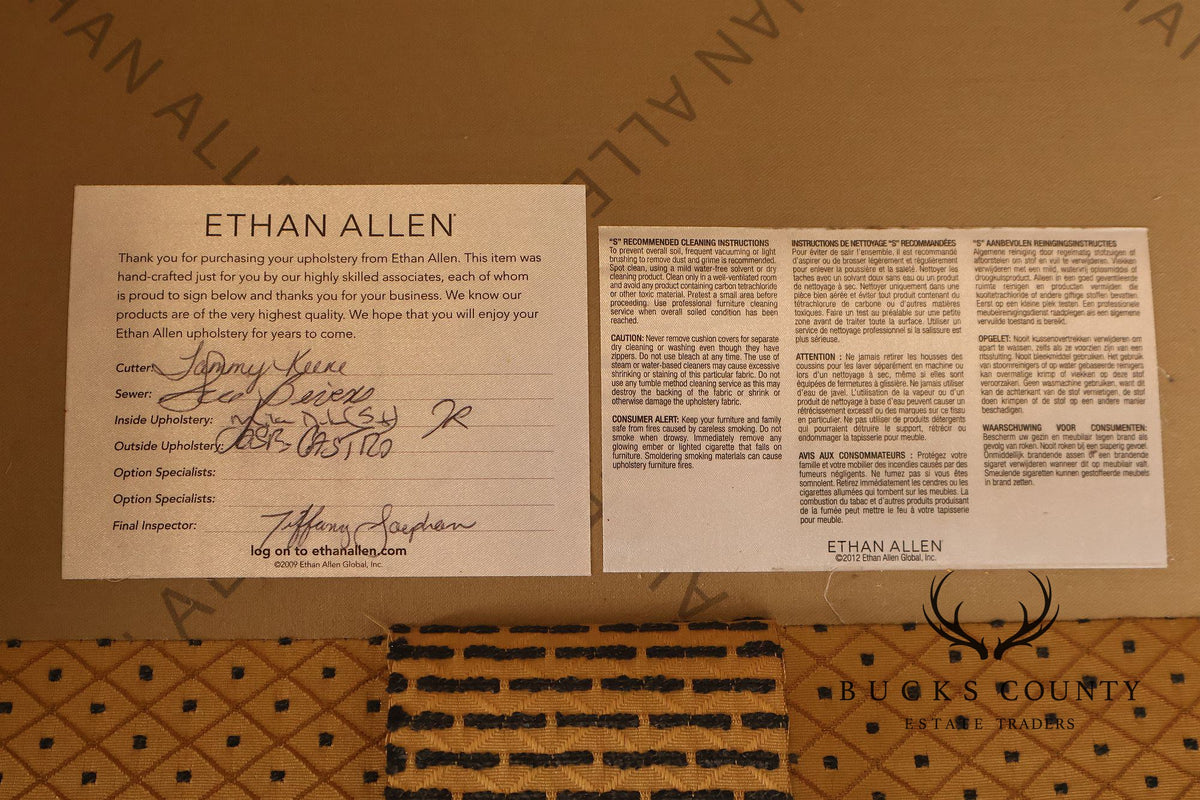 ETHAN ALLEN
ETHAN ALLEN
ETHAN ALLEN
Thank you for purchasing your upholstery from Ethan Allen. This item was
hand-crafted just for you by our highly skilled associates, each of whom
is proud to sign below and thanks you for your business. We know our
products are of the very highest quality. We hope that you will enjoy your
Ethan Allen upholstery for years to come.
Cutter: Tammy Keene
Sewer:
Inside Upholstery: JR
Outside Upholstery: CASTRO
Option Specialists:
Option Specialists:
Final Inspector: Tiffany Saephan
log on to ethanallen.com
©2009 Ethan Allen Global, Inc.
"S" RECOMMENDED CLEANING INSTRUCTIONS
To prevent overall soil, frequent vacuuming or light
brushing to remove dust and grime is recommended.
Spot clean, using a mild water-free solvent or dry
cleaning product. Clean only in a well-ventilated room
and avoid any product containing carbon tetrachloride
or other toxic material. Pretest a small area before
proceeding. Use professional furniture cleaning
service when overall soiled condition has been
reached.
CAUTION: Never remove cushion covers for separate
dry cleaning or washing even though they have
zippers. Do not use bleach at any time. The use of
steam or water-based cleaners may cause excessive
shrinking or staining of this particular fabric. Do not
use any tumble method cleaning service as this may
destroy the backing of the fabric or shrink or
otherwise damage the upholstery fabric.
CONSUMER ALERT: Keep your furniture and family
safe from fires caused by careless smoking. Do not
smoke when drowsy. Immediately remove any
glowing ember or lighted cigarette that falls on
furniture. Smoldering smoking materials can cause
upholstery furniture fires.
INSTRUCTIONS DE NETTOYAGE "S" RECOMMANDÉES
Pour éviter de salir l'ensemble, il est recommandé
d'aspirer ou de brosser légèrement et régulièrement
pour enlever la poussière et la saleté. Nettoyer les
taches avec un solvant doux sans eau ou un produit
de nettoyage à sec. Nettoyer uniquement dans une
pièce bien aérée et éviter tout produit contenant du
tétrachlorure de carbone ou d'autres matières
toxiques. Faire un test au préalable sur une petite
zone avant de traiter toute la surface. Utiliser un
service de nettoyage professionnel si la salissure est
plus sérieuse.
ATTENTION : Ne jamais retirer les housses des
coussins pour les laver séparément en machine ou
lors d'un nettoyage à sec, même si elles sont
équipées de fermetures à glissière. Ne jamais utiliser
d'eau de javel. L'utilisation de la vapeur ou d'un
produit de nettoyage à base d'eau peuvent causer un
rétrécissement excessif ou des marques sur ce tissu
en particulier. Ne pas utiliser de produits détergents
qui pourraient détruire le support, rétrécir ou
endommager la tapisserie pour meuble.
AVIS AUX CONSOMMATEURS : Protégez votre
famille et votre mobilier des incendies causés par des
fumeurs négligents. Ne fumez pas si vous êtes
somnolent. Retirez immédiatement les cendres ou les
cigarettes allumées qui tombent sur les meubles. La
combustion du tabac et d'autres produits produisant
de la fumée peut mettre le feu à votre tapisserie
pour meuble.
"S" AANBEVOLEN REINIGINGSINSTRUCTIES
Algemene reiniging door regelmatig stofzuigen of
afborstelen om stof en vuil te verwijderen. Vlekken
verwijderen met een mild, watervrij oplosmiddel of
droogkuisproduct. Alleen in een goed geventileerde
ruimte reinigen en producten vermijden die
kooltetrachloride of andere giftige stoffen bevatten.
Eerst op een kleine plek testen. Een professionele
meubelreinigingsdienst raadplegen als een algemene
vervuilde toestand is bereikt.
OPGELET: Nooit kussenovertrekken verwijderen om
apart te wassen, zelfs als ze voorzien zijn van een
ritssluiting. Nooit bleekmiddel gebruiken. Het gebruik
van stoomreinigers of op water gebaseerde reinigers
kan overmatige krimp of vlekken op deze stof
veroorzaken. Geen wasmachine gebruiken, want dit
kan de achterkant van de stof vernietigen, de stof
doen krimpen of de stof op een andere manier
beschadigen.
WAARSCHUWING VOOR CONSUMENTEN:
Bescherm uw gezin en meubilair tegen brand als
gevolg van roken. Nooit roken bij een slaperig gevoel.
Onmiddellijk brandende assen of een brandende
sigaret verwijderen wanneer dit op meubilair valt.
Smeulende sigaretten kunnen gestoffeerde meubels
in brand zetten.
ETHAN ALLEN
©2012 Ethan Allen Global, Inc.
BUCKS COUNTY
ESTATE TRADERS